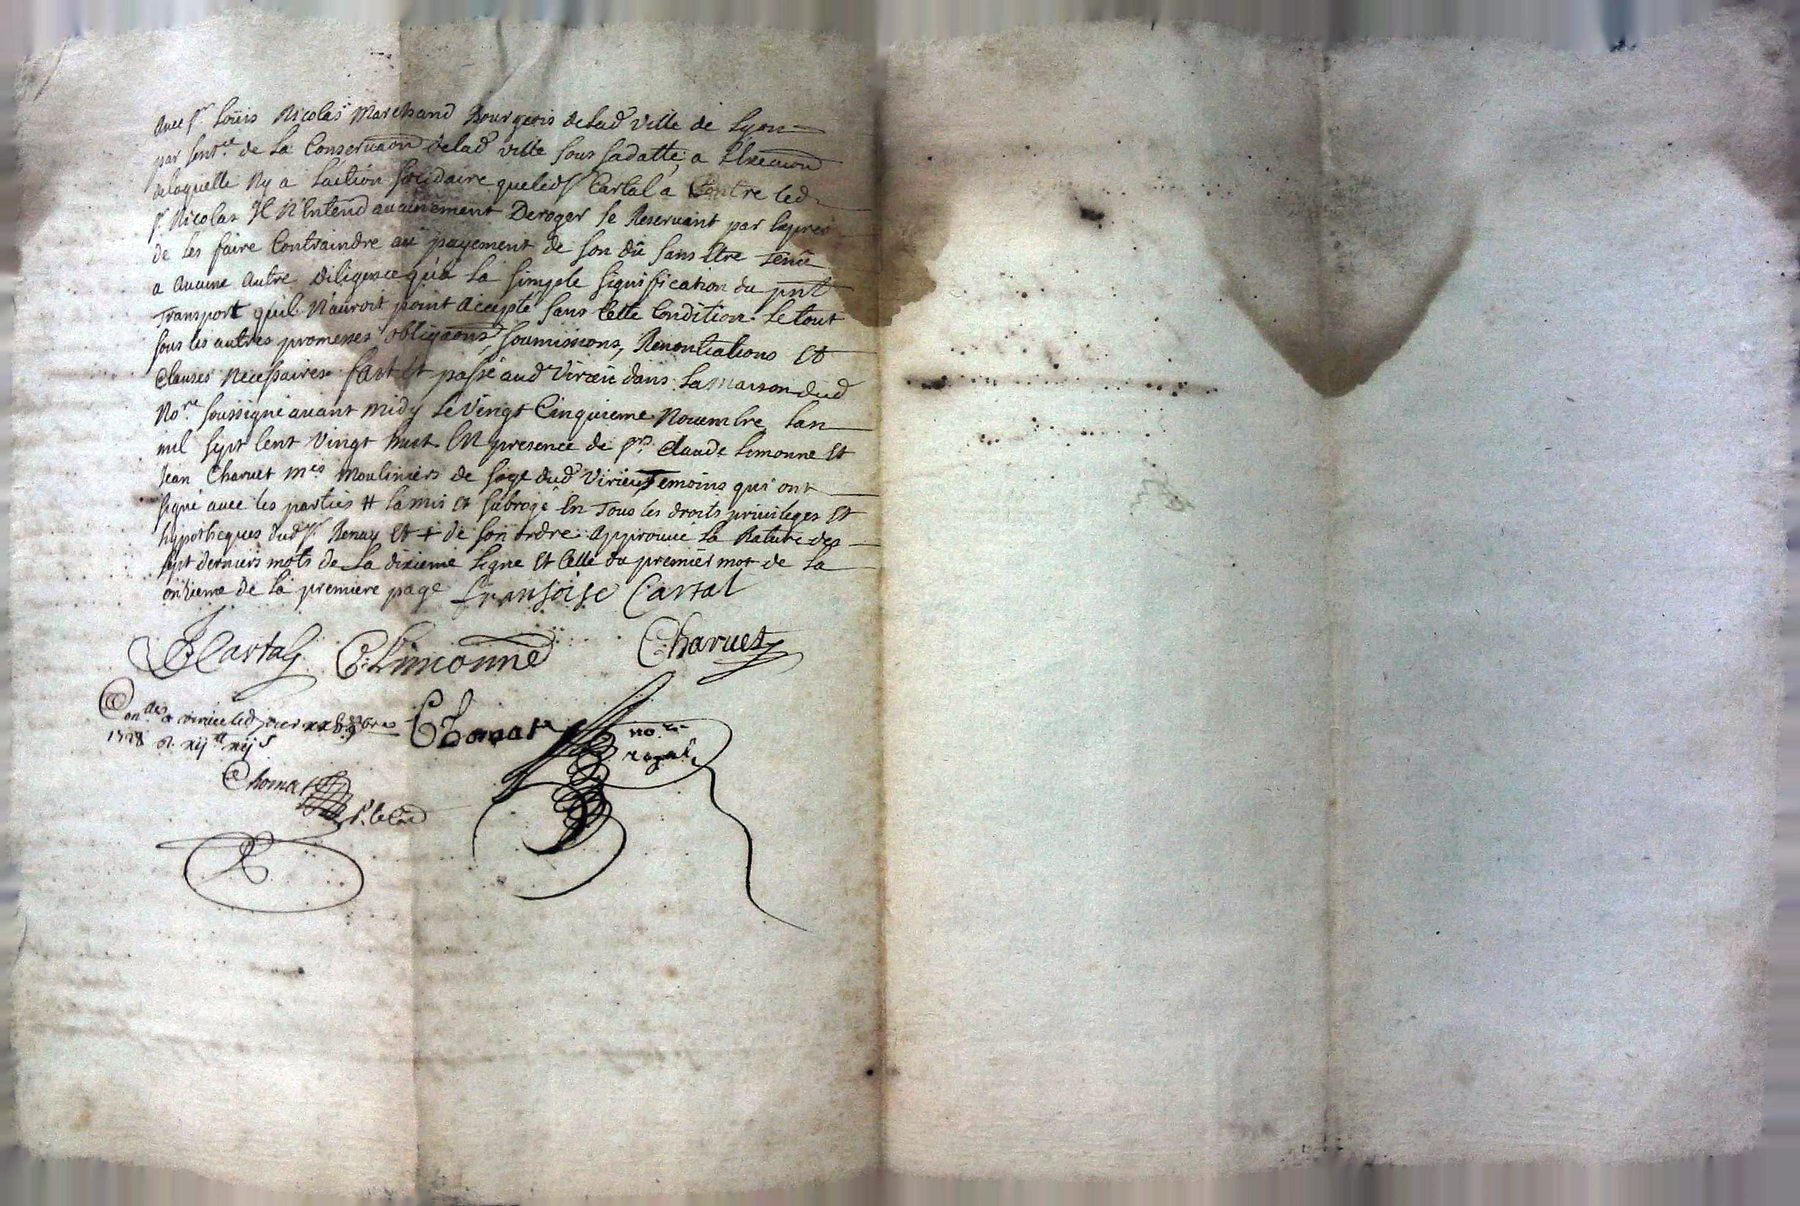 avec sr. Loüis Nicolas Marchand Bourgeois delad ville de Lyon
par sentce. de La Conservaon delad ville sous sadatte, a Lexecuion
delaquelle Ny a Laction solidaire queleds Cartal a Contre led
sr. Nicolas Il N'Entend aucunement Deroger se Reservant par Exprès
de les faire Contraindre au payement de son dû sans Etre tenû
a aucune autre Diligence qu'a La simple signification du pnt
Transport qu'il N'auroit point accepté sans Cette Condition. Le tout
sous les autres promesses obligaons, soumissions, Renontiations Et
Clauses Necessaires. fait Et passé aud Virieu dans La maison dud
Nore. soussigné avant midy Le Vingt Cinquieme Novembre Lan
mil sept Cent Vingt huit En presence de srs. Claude Limonne Et
Jean Charvet mes Mouliniers de soye dud Virieu Temoins qui ont
signé avec les parties # La mis et subrogé En Tous les droits privileges Et
hypotheques dud sr. Renay Et + de son ordre. approuvé La Rature des
sept derniers mots de La dixieme Ligne Et Celle du premier mot de La
onzieme de La premiere page Fransoise Cartal
Cartal C. Limonne Charvet
1728 Thomas nore. royal
Thomas